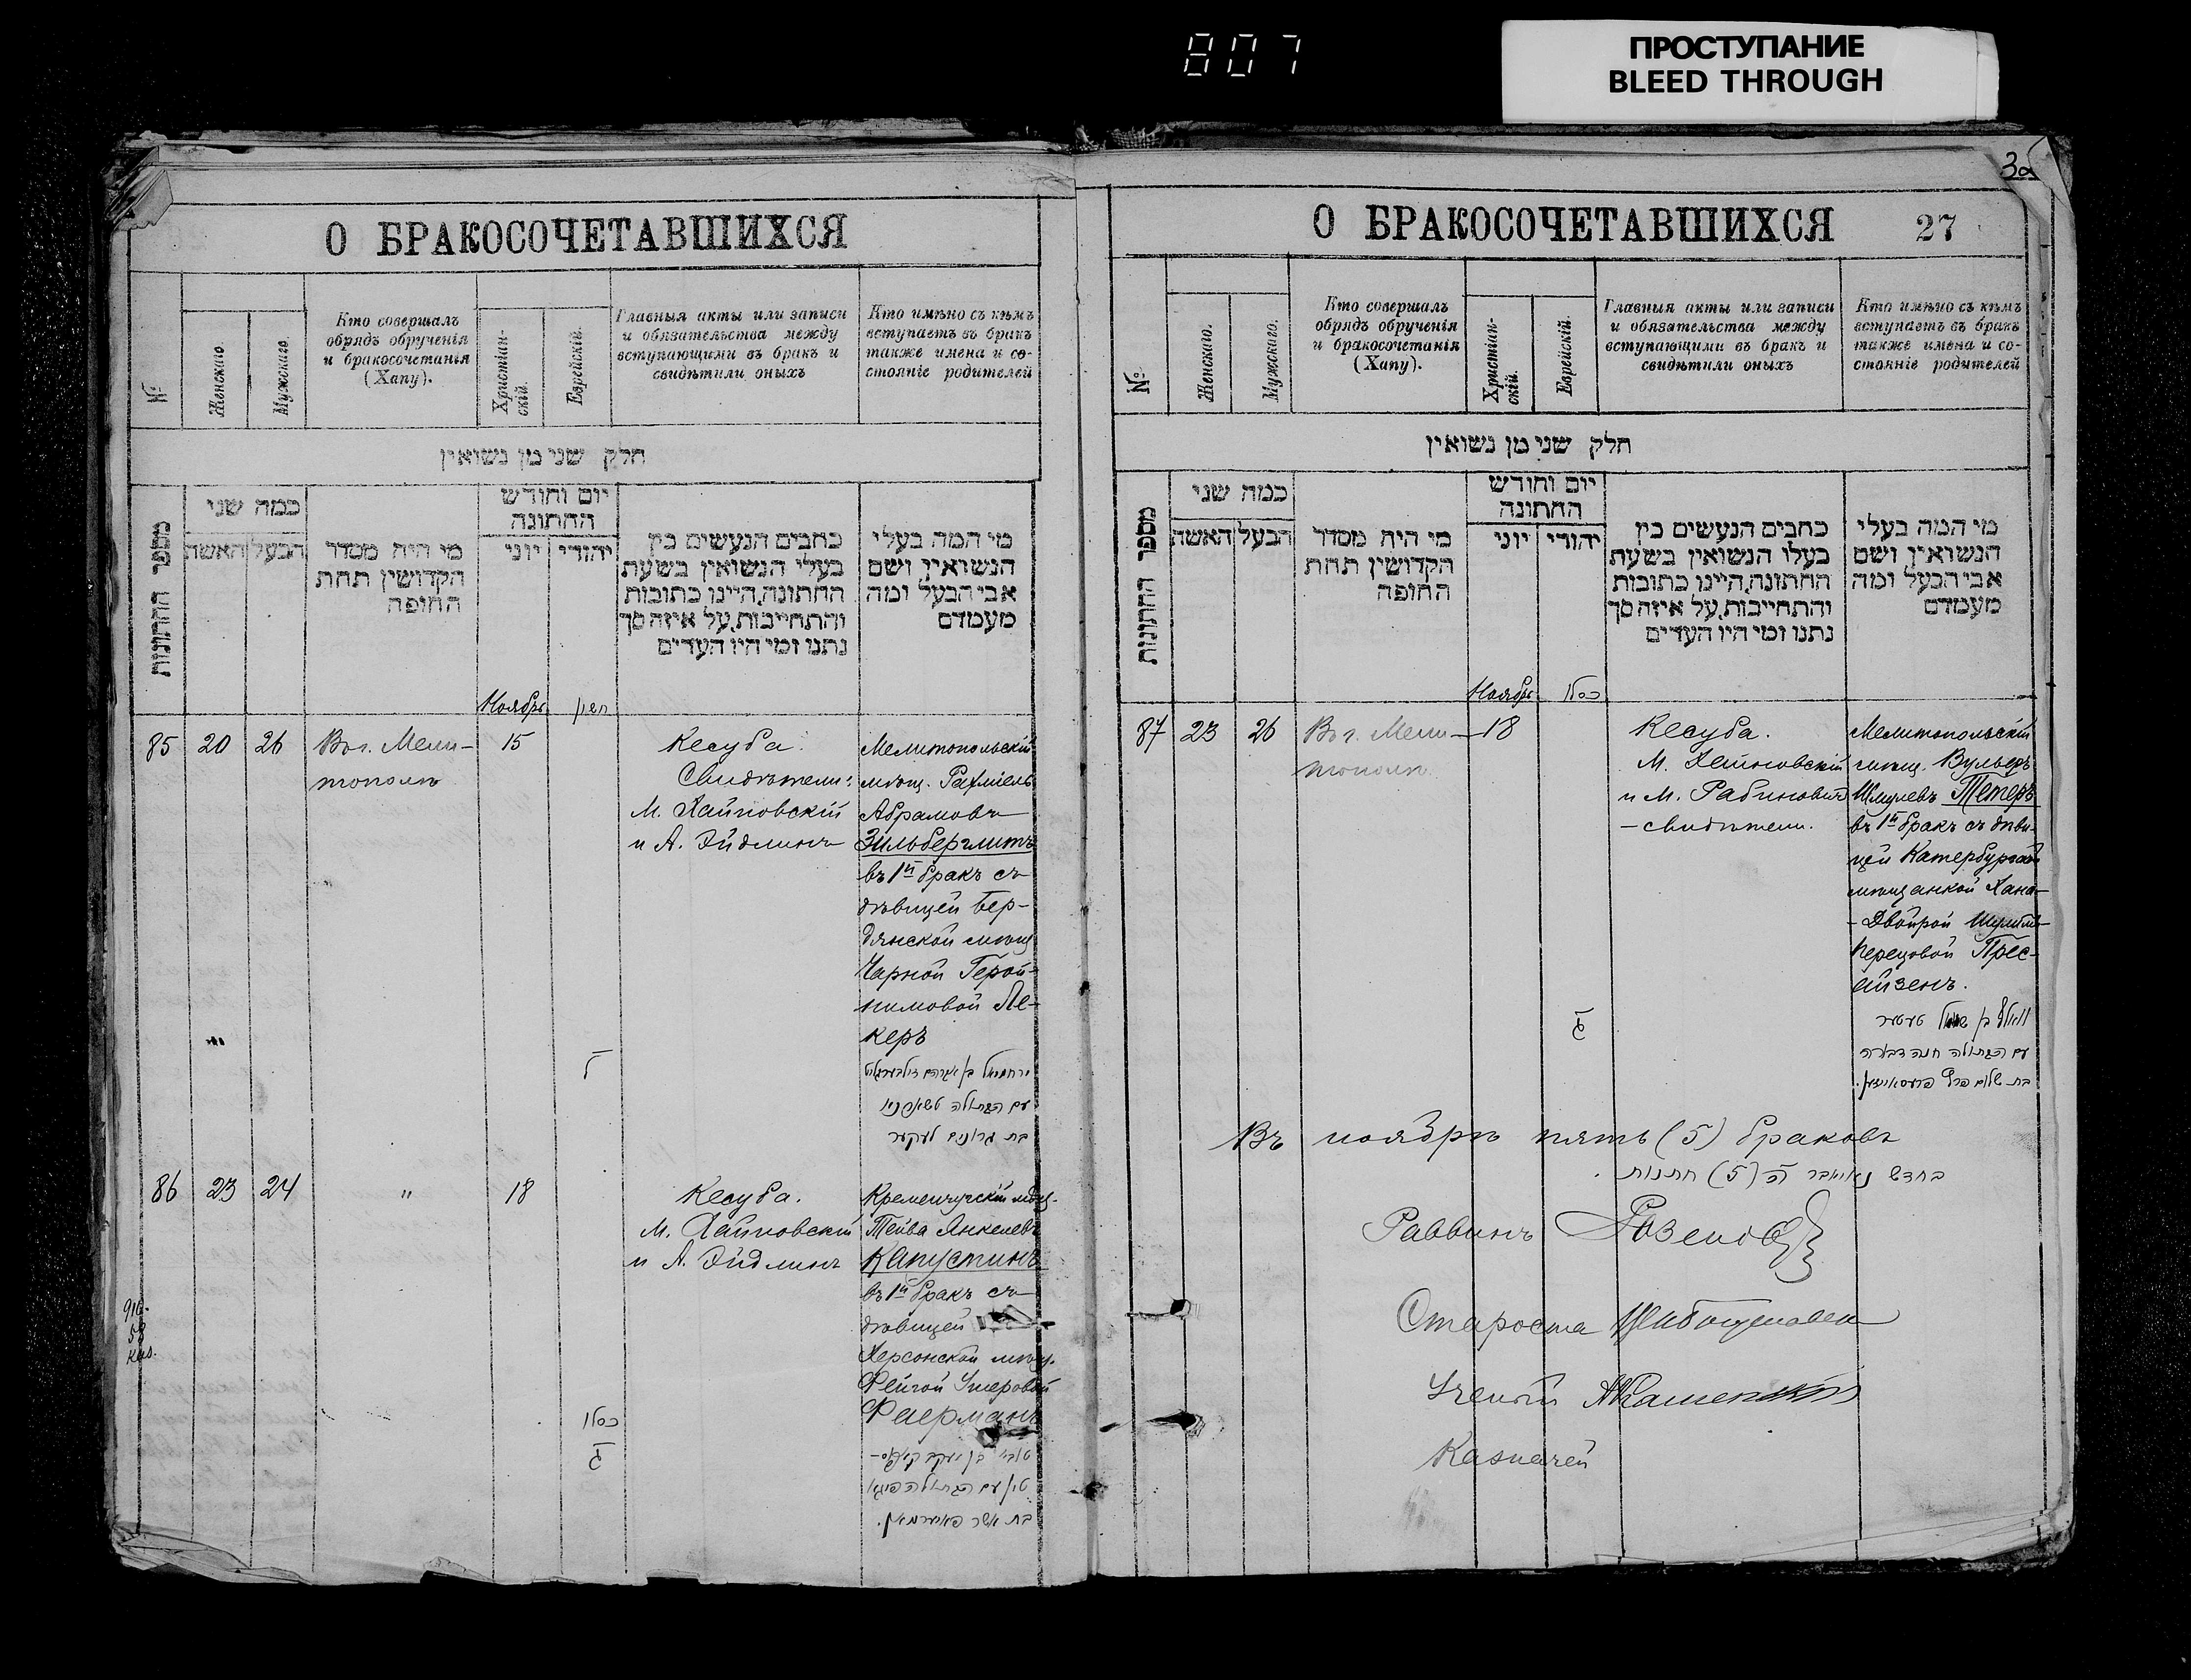 807
ПРОСТУПАНИЕ
BLEED THROUGH
О БРАКОСОЧЕТАВШИХСЯ
№
Женскаго.
Мужскаго.
Кто совершалъ
обрядъ обрученія
и бракосочетанія
(Хапу).
Христіан-
скій.
Еврейскій.
Главныя акты или записи
и обязательства между
вступающими въ бракъ и
свидѣтили оныхъ
Кто имѣно съ кѣмъ
вступаетъ въ бракъ
также имена и со-
стояніе родителей
חלק שני מן נשואין
מספר החתונות
כמה שני
האשה
הבעל
מי היה מסדר
הקדושין תחת
החופה
יום וחודש
החתונה
יוני
יהודי
כתבים הנעשים בין
בעלי הנשואין בשעת
החתונה,היינו כתובות
והתחייבות,על איזה סך
נתנו ומי היו העדים
מי המה בעלי
הנשואין ושם
אבי הבעל ומה
מעמדם
Ноябрь
חשון
85 20 26
Въ г. Мели-
тополѣ
15
Кесуба.
Свидѣтели:
М. Хайновскій
и А. Эйдлинъ
Мелитопольскій
мѣщ. Рахміель
Абрамовъ
Зильберглитъ
въ 1й бракъ съ
дѣвицей Бер-
дянской мѣщ
Чарной Герой-
нимовой Ле-
керъ
ירחמיאל בן אברהם זילבערגליט
עם הבתולה טשארנא
בת גרונים לעקער
86 23 24
"
18
Кесуба.
М. Хайновскій
и А. Эйдлинъ
Кременчугскій мѣщ.
Тейва Янкелевъ
Капустинъ
въ 1й бракъ съ
дѣвицей
Херсонской мѣщ.
Фейгой Умеровой
Фаерманъ
כסלו
ב
טין עם הבתולה פייגא
בת אשר פאיערמאן.
О БРАКОСОЧЕТАВШИХСЯ 27
№
Женскаго.
Мужскаго.
Кто совершалъ
обрядъ обрученія
и бракосочетанія
(Хапу).
Христіан-
скій.
Еврейскій.
Главныя акты или записи
и обязательства между
вступающими въ бракъ и
свидѣтили оныхъ
Кто имѣно съ кѣмъ
вступаетъ въ бракъ
также имена и со-
стояніе родителей
חלק שני מן נשואין
מספר החתונות
כמה שני
האשה
הבעל
מי היה מסדר
הקדושין תחת
החופה
יום וחודש
החתונה
יוני
יהודי
כתבים הנעשים בין
בעלו הנשואין בשעת
החתונה,היינו כתובות
והתחייבות,על איזה סך
נתנו ומי היו העדים
מי המה בעלי
הנשואין ושם
אבי הבעל ומה
מעמדם
Ноябрь
כסלו
87 23 26
Въ г. Мели-
тополѣ.
18
Кесуба.
М. Хейновскій
и М. Рабиновичъ
- свидѣтели.
Мелитопольскій
мѣщ. Вульфъ
Шмулевъ Тетеръ
въ 1й бракъ съ дѣви-
цей Катербургской
мѣщанкой Хана-
- Двойрой
Перецовой Прес-
айзенъ.
ב
וואלף בן שמואל טעטער
עם הבתולה חנה דבורה
בת שלום פרץ פרעסאייזען.
Въ ноябрѣ пять (5) браковъ
בחדש נאוועבר ה (5) חתונות.
Раввинъ
Староста
Ученый
Казначей